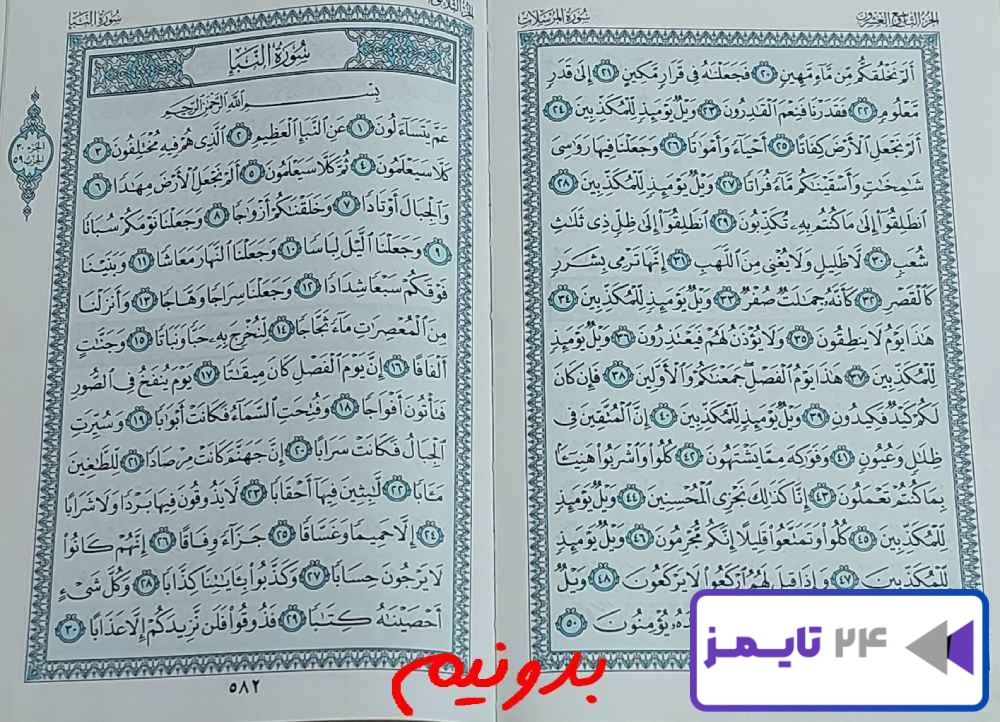 سورة المرسلات
أَلَمْ نَخْلُقكُّم مِّن مَّآءٍ مَّهِينٍ ٢٠ فَجَعَلْنَـٰهُ فِى قَرَارٍ مَّكِينٍ ٢١ إِلَىٰ قَدَرٍ
مَّعْلُومٍ ٢٢ فَقَدَرْنَا فَنِعْمَ ٱلْقَـٰدِرُونَ ٢٣ وَيْلٌ يَوْمَئِذٍ لِّلْمُكَذِّبِينَ ٢٤
أَلَمْ نَجْعَلِ ٱلْأَرْضَ كِفَاتًا ٢٥ أَحْيَآءً وَأَمْوَٰتًا ٢٦ وَجَعَلْنَا فِيهَا رَوَٰسِىَ
شَـٰمِخَـٰتٍ وَأَسْقَيْنَـٰكُم مَّآءً فُرَاتًا ٢٧ وَيْلٌ يَوْمَئِذٍ لِّلْمُكَذِّبِينَ ٢٨
ٱنطَلِقُوٓا۟ إِلَىٰ مَا كُنتُم بِهِۦ تُكَذِّبُونَ ٢٩ ٱنطَلِقُوٓا۟ إِلَىٰ ظِلٍّ ذِى ثَلَـٰثِ
شُعَبٍ ٣٠ لَّا ظَلِيلٍ وَلَا يُغْنِى مِنَ ٱللَّهَبِ ٣١ إِنَّهَا تَرْمِى بِشَرَرٍ
كَٱلْقَصْرِ ٣٢ كَأَنَّهُۥ جِمَـٰلَتٌ صُفْرٌ ٣٣ وَيْلٌ يَوْمَئِذٍ لِّلْمُكَذِّبِينَ ٣٤
هَـٰذَا يَوْمُ لَا يَنطِقُونَ ٣٥ وَلَا يُؤْذَنُ لَهُمْ فَيَعْتَذِرُونَ ٣٦ وَيْلٌ يَوْمَئِذٍ
لِّلْمُكَذِّبِينَ ٣٧ هَـٰذَا يَوْمُ ٱلْفَصْلِ جَمَعْنَـٰكُمْ وَٱلْأَوَّلِينَ ٣٨ فَإِن كَانَ
لَكُمْ كَيْدٌ فَكِيدُونِ ٣٩ وَيْلٌ يَوْمَئِذٍ لِّلْمُكَذِّبِينَ ٤٠ إِنَّ ٱلْمُتَّقِينَ فِى
ظِلَـٰلٍ وَعُيُونٍ ٤١ وَفَوَٰكِهَ مِمَّا يَشْتَهُونَ ٤٢ كُلُوا۟ وَٱشْرَبُوا۟ هَنِيٓـًٔۢا
بِمَا كُنتُمْ تَعْمَلُونَ ٤٣ إِنَّا كَذَٰلِكَ نَجْزِى ٱلْمُحْسِنِينَ ٤٤ وَيْلٌ يَوْمَئِذٍ
لِّلْمُكَذِّبِينَ ٤٥ كُلُوا۟ وَتَمَتَّعُوا۟ قَلِيلًا إِنَّكُم مُّجْرِمُونَ ٤٦ وَيْلٌ يَوْمَئِذٍ
لِّلْمُكَذِّبِينَ ٤٧ وَإِذَا قِيلَ لَهُمُ ٱرْكَعُوا۟ لَا يَرْكَعُونَ ٤٨ وَيْلٌ
يُؤْمِنُونَ ٥٠
سورة النبإ
الجزء ٣٠
الحزب ٥٩
سُورَةُ النَّبَإِ
بِسْمِ ٱللَّهِ ٱلرَّحْمَـٰنِ ٱلرَّحِيمِ
عَمَّ يَتَسَآءَلُونَ ١ عَنِ ٱلنَّبَإِ ٱلْعَظِيمِ ٢ ٱلَّذِى هُمْ فِيهِ مُخْتَلِفُونَ ٣
كَلَّا سَيَعْلَمُونَ ٤ ثُمَّ كَلَّا سَيَعْلَمُونَ ٥ أَلَمْ نَجْعَلِ ٱلْأَرْضَ مِهَـٰدًا ٦
وَٱلْجِبَالَ أَوْتَادًا ٧ وَخَلَقْنَـٰكُمْ أَزْوَٰجًا ٨ وَجَعَلْنَا نَوْمَكُمْ سُبَاتًا
٩ وَجَعَلْنَا ٱلَّيْلَ لِبَاسًا ١٠ وَجَعَلْنَا ٱلنَّهَارَ مَعَاشًا ١١ وَبَنَيْنَا
فَوْقَكُمْ سَبْعًا شِدَادًا ١٢ وَجَعَلْنَا سِرَاجًا وَهَّاجًا ١٣ وَأَنزَلْنَا
مِنَ ٱلْمُعْصِرَٰتِ مَآءً ثَجَّاجًا ١٤ لِّنُخْرِجَ بِهِۦ حَبًّا وَنَبَاتًا ١٥ وَجَنَّـٰتٍ
أَلْفَافًا ١٦ إِنَّ يَوْمَ ٱلْفَصْلِ كَانَ مِيقَـٰتًا ١٧ يَوْمَ يُنفَخُ فِى ٱلصُّورِ
فَتَأْتُونَ أَفْوَاجًا ١٨ وَفُتِحَتِ ٱلسَّمَآءُ فَكَانَتْ أَبْوَٰبًا ١٩ وَسُيِّرَتِ
ٱلْجِبَالُ فَكَانَتْ سَرَابًا ٢٠ إِنَّ جَهَنَّمَ كَانَتْ مِرْصَادًا ٢١ لِّلطَّـٰغِينَ
مَـَٔابًا ٢٢ لَّـٰبِثِينَ فِيهَآ أَحْقَابًا ٢٣ لَّا يَذُوقُونَ فِيهَا بَرْدًا وَلَا شَرَابًا
٢٤ إِلَّا حَمِيمًا وَغَسَّاقًا ٢٥ جَزَآءً وِفَاقًا ٢٦ إِنَّهُمْ كَانُوا۟
لَا يَرْجُونَ حِسَابًا ٢٧ وَكَذَّبُوا۟ بِـَٔايَـٰتِنَا كِذَّابًا ٢٨ وَكُلَّ شَىْءٍ
أَحْصَيْنَـٰهُ كِتَـٰبًا ٢٩ فَذُوقُوا۟ فَلَن نَّزِيدَكُمْ إِلَّا عَذَابًا ٣٠
٥٨٢
بدونیم
۲۴ تایمز